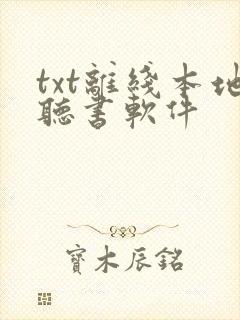 txt離綫本地
聽書軟件
寶木辰銘